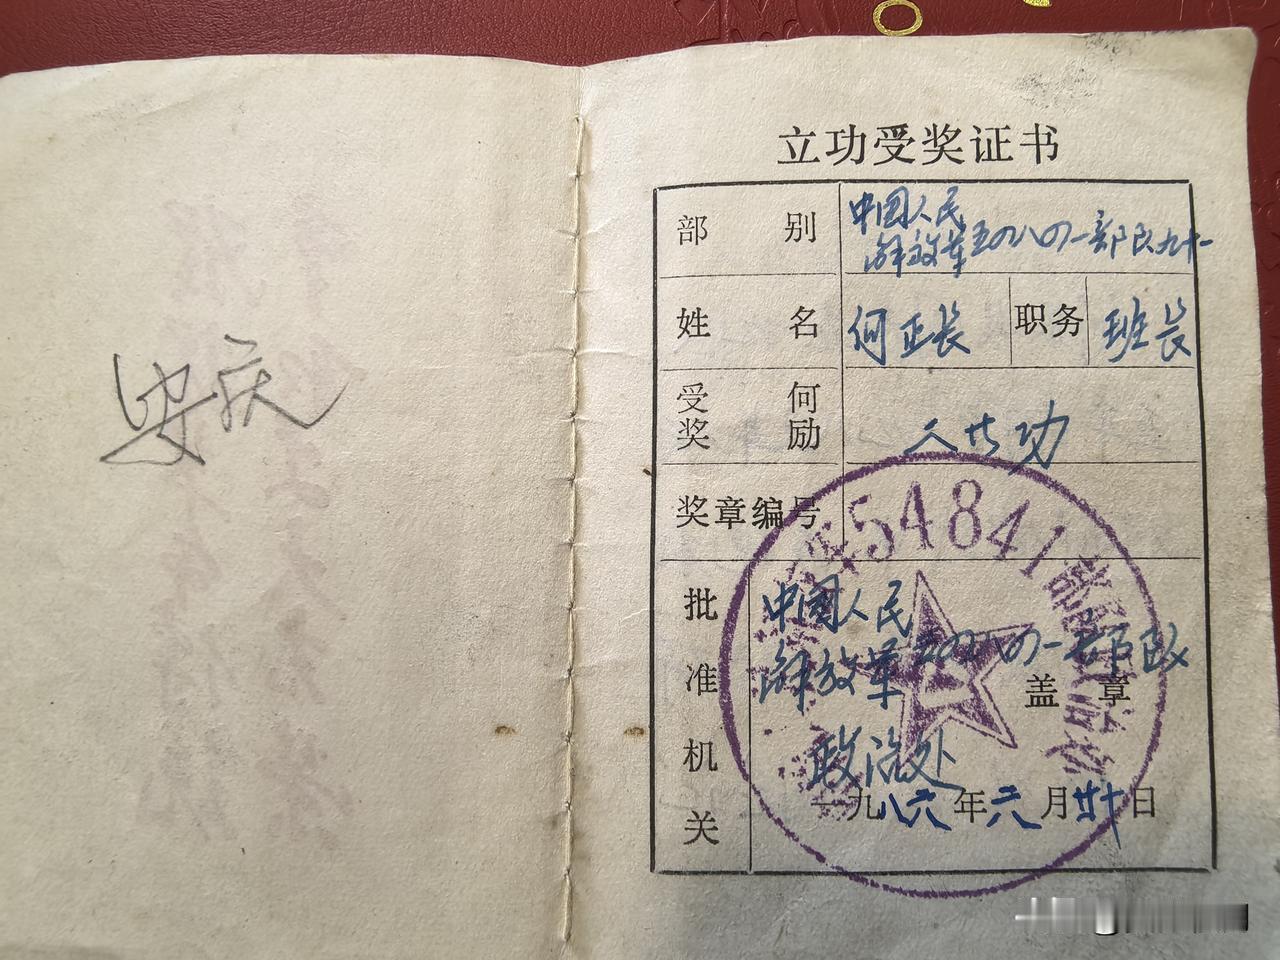 安庆
立功受奖证书
部别
中国人民
解放军五四八四一部队九十一
姓名
何正长
职务
班长
受何
奖励
三等功
奖章编号
54841部队
批准机关
中国人民
解放军五四八四一部队
盖章
政治处
一九八六年六月廿十日